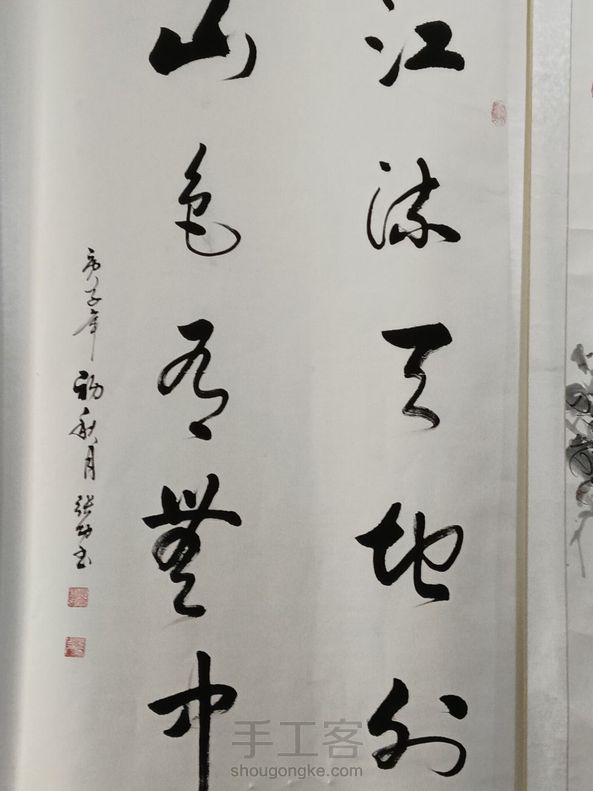 江流天地外
山色有無中
庚子年初秋月張
书
手工客
shougongke.com